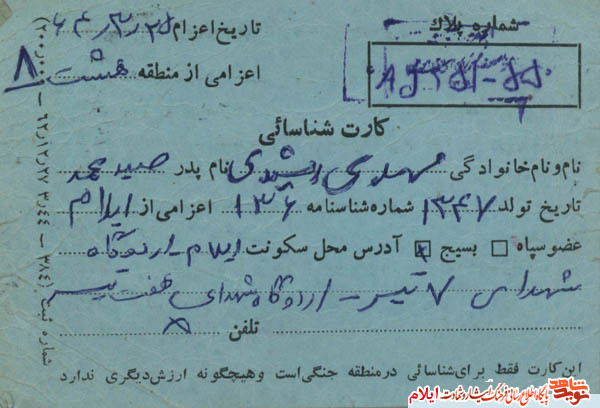 شماره پلاك
تاریخ اعزام ۶۴/۳/۲۵
اعزامی از منطقه هشت ۸
کارت شناسائی
نام و نام خانوادگی مهدی رشیدی نام پدر صید محمد
تاریخ تولد ۱۳۴۷ شماره شناسنامه ۱۳۶ اعزامی از ایلام
عضو سپاه □ بسیج ☒ آدرس محل سکونت ایلام - اردوگاه
شهدای ۷ تیر - اردوگاه شهدای هفت تیر
تلفن
این کارت فقط برای شناسائی در منطقه جنگی است و هیچگونه ارزش دیگری ندارد
نوید شاهد
پایگاه اطلاع رسانی فرهنگ ایثار و شهادت ایلام